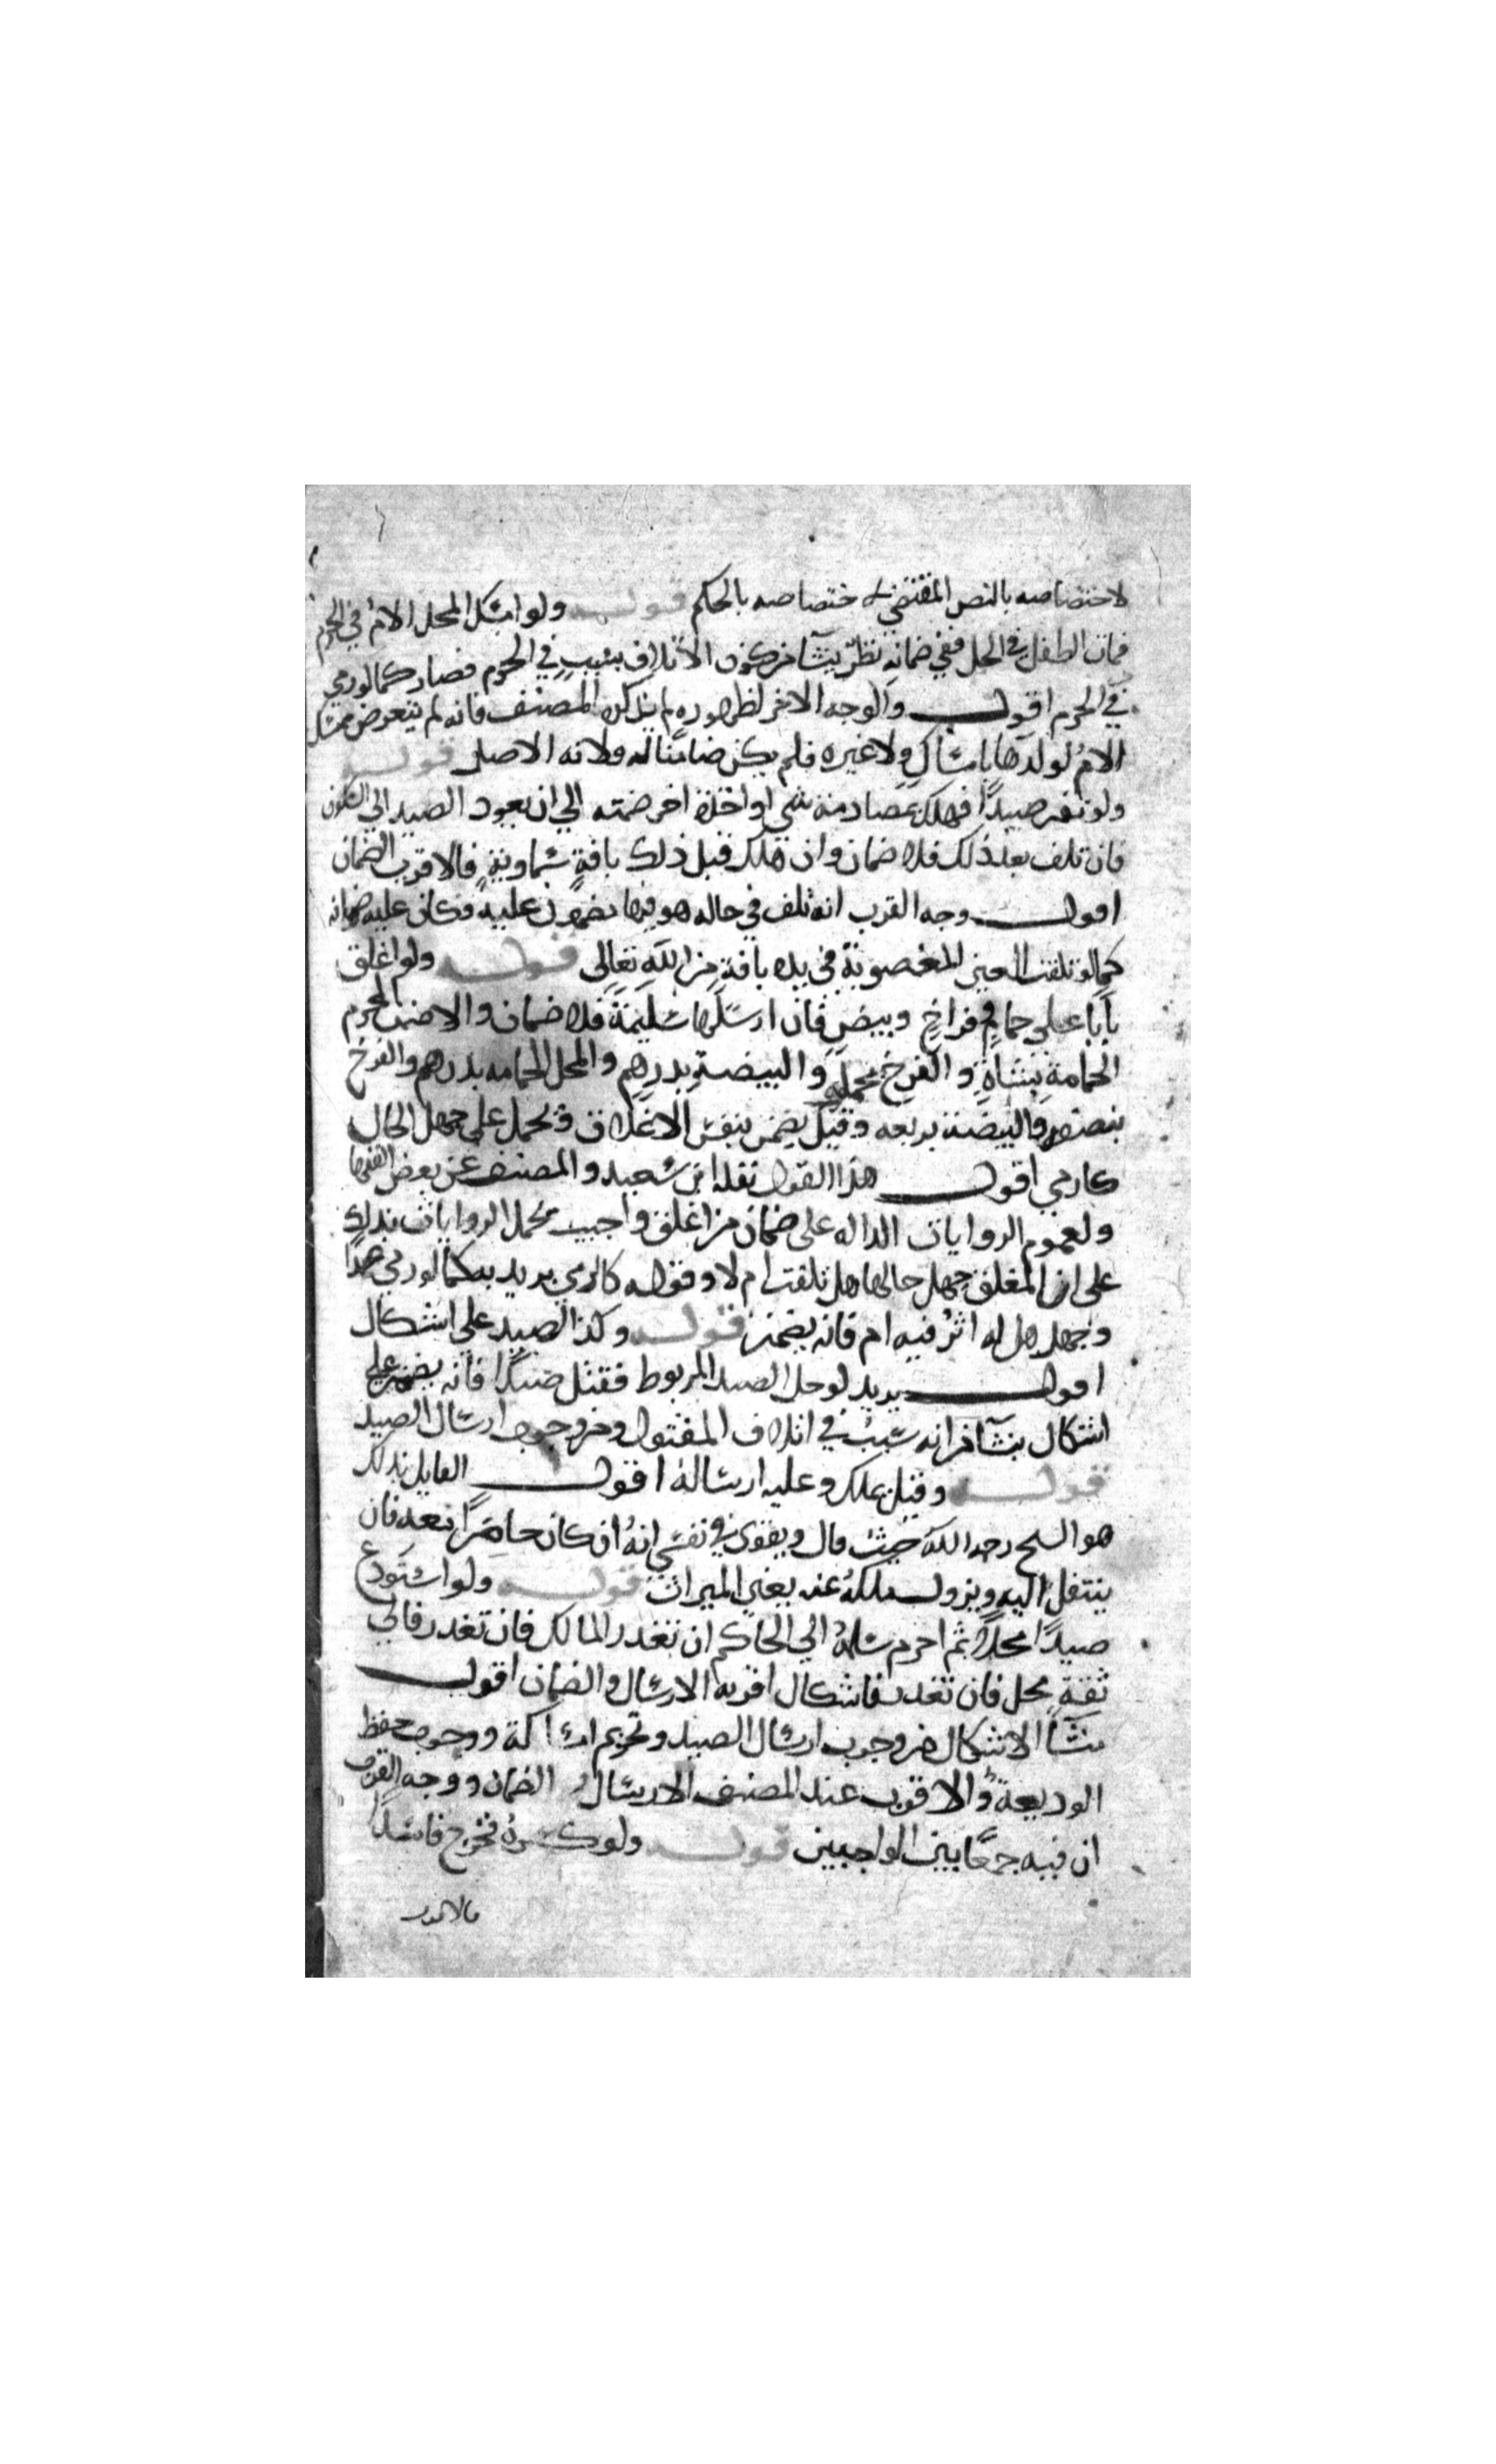 لاختصاصه بالنص المقتضي لاختصاصه بالحكم قوله ولو امسك المحل الام في الحرم
فمات الطفل في الحل ففي ضمانه نظر ينشا من كون الاتلاف بسبب في الحرم فصار كما لو رمي
في الحرم اقول والوجه الاخر لظهوره لم يذكره المصنف فانه لم يتعرض ممسك
الام لولدها بامساك ولا غيره فلم يكن ضامنا له ولانه الاصل قوله
ولو نفر صيدا فهلك بمصادمة شي او اخذه اخر ضمنه الي ان يعود الصيد الي السكون
فان تلف بعد ذلك فلا ضمان وان هلك قبل ذلك بافة سماوية فالاقرب الضمان
اقول وجه القرب انه تلف في حاله هو فيها مضمون عليه فكان عليه ضمانه
كما لو تلفت العين المغصوبة في يده بافة من الله تعالى قوله ولو اغلق
بابا على حمام وفراخ وبيض فان ارسلها سليمة فلا ضمان والا ضمن المحرم
الحمامة بشاة والفرخ بحمل والبيضة بدرهم والمحل الحمامه بدرهم والفرخ
بنصفه والبيضة بربعه وقيل يضمن بنفس الاغلاق ويحمل على جهل الحال
كالرمي اقول هذا القول نقله ابن سعيد والمصنف عن بعض الفقها
ولعموم الروايات الداله على ضمان من اغلق واجيب بحمل الروايات بذلك
على ان المغلق جهل حالها هل تلفت ام لا وقوله كالرمي يريد به كما لو رمي صيدا
وجهل هل له اثر فيه ام فانه يضمن قوله وكذا الصيد علي اشكال
اقول يريد لو حل الصيد المربوط فقتل صيدا فانه يضمن علي
اشكال ينشا من انه سبب في اتلاف المقتول ومن وجوب ارسال الصيد
قوله وقيل يملك وعليه ارساله اقول القايل بذلك
هو الشيخ رحمه الله حيث قال ويقوى في نفسي انه ان كان حاضرا معه فان
ينتقل اليه ويزول ملكه عنه يعني الميراث قوله ولو استودع
صيدا محلا ثم احرم سلمه الي الحاكم ان تعذر المالك فان تعذر فالي
ثقة محل فان تعذر فاشكال اقربه الارسال والضمان اقول
منشا الاشكال من وجوب ارسال الصيد وتحريم امساكه ووجوب حفظ
الوديعة والاقرب عند المصنف الارسال والضمان ووجه القرب
ان فيه جمعا بين الواجبين قوله ولو كسره فخرج فاسدا
فالاقرب